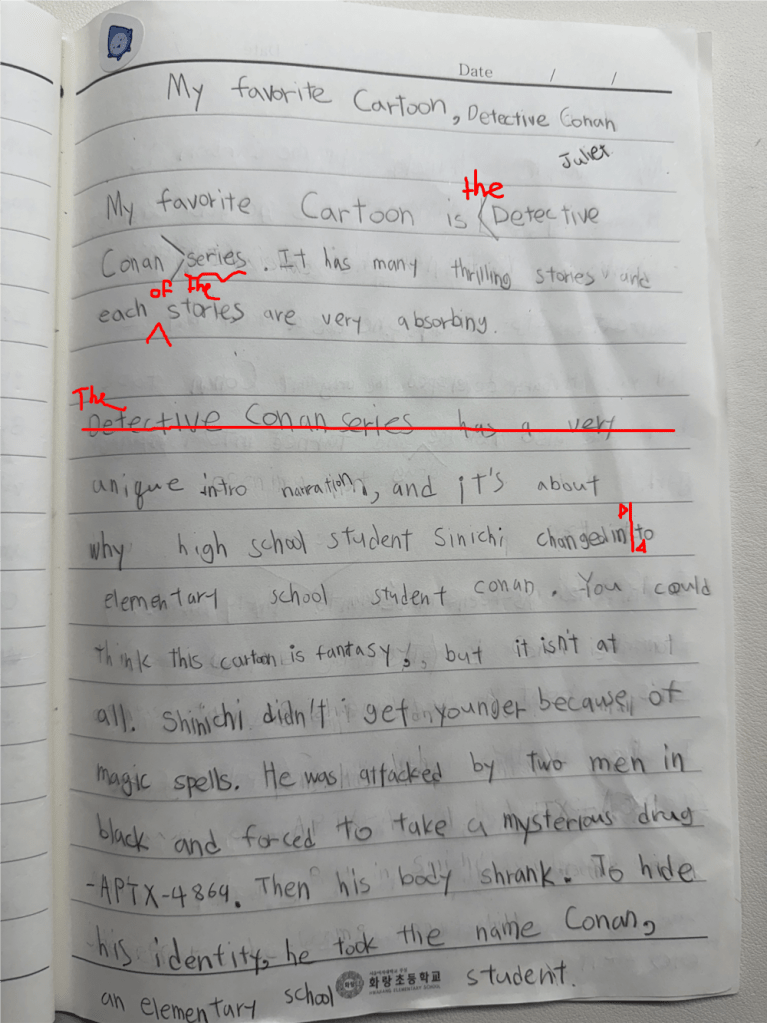 Date / /
My favorite Cartoon, Detective Conan
Juliet
the
My favorite Cartoon is Detective
Conan series. It has many thrilling stories and
of the
each stories are very absorbing.
The
Detective Conan series has a very
unique intro narration, and it's about
why high school student Sinichi changed in to
elementary school student conan. You could
think this cartoon is fantasy, but it isn't at
all. Shinichi didn't get younger because of
magic spells. He was attacked by two men in
black and forced to take a mysterious drug
-APTX-4869. Then his body shrank. To hide
his identity, he took the name Conan,
an elementary school student.
화랑초등학교